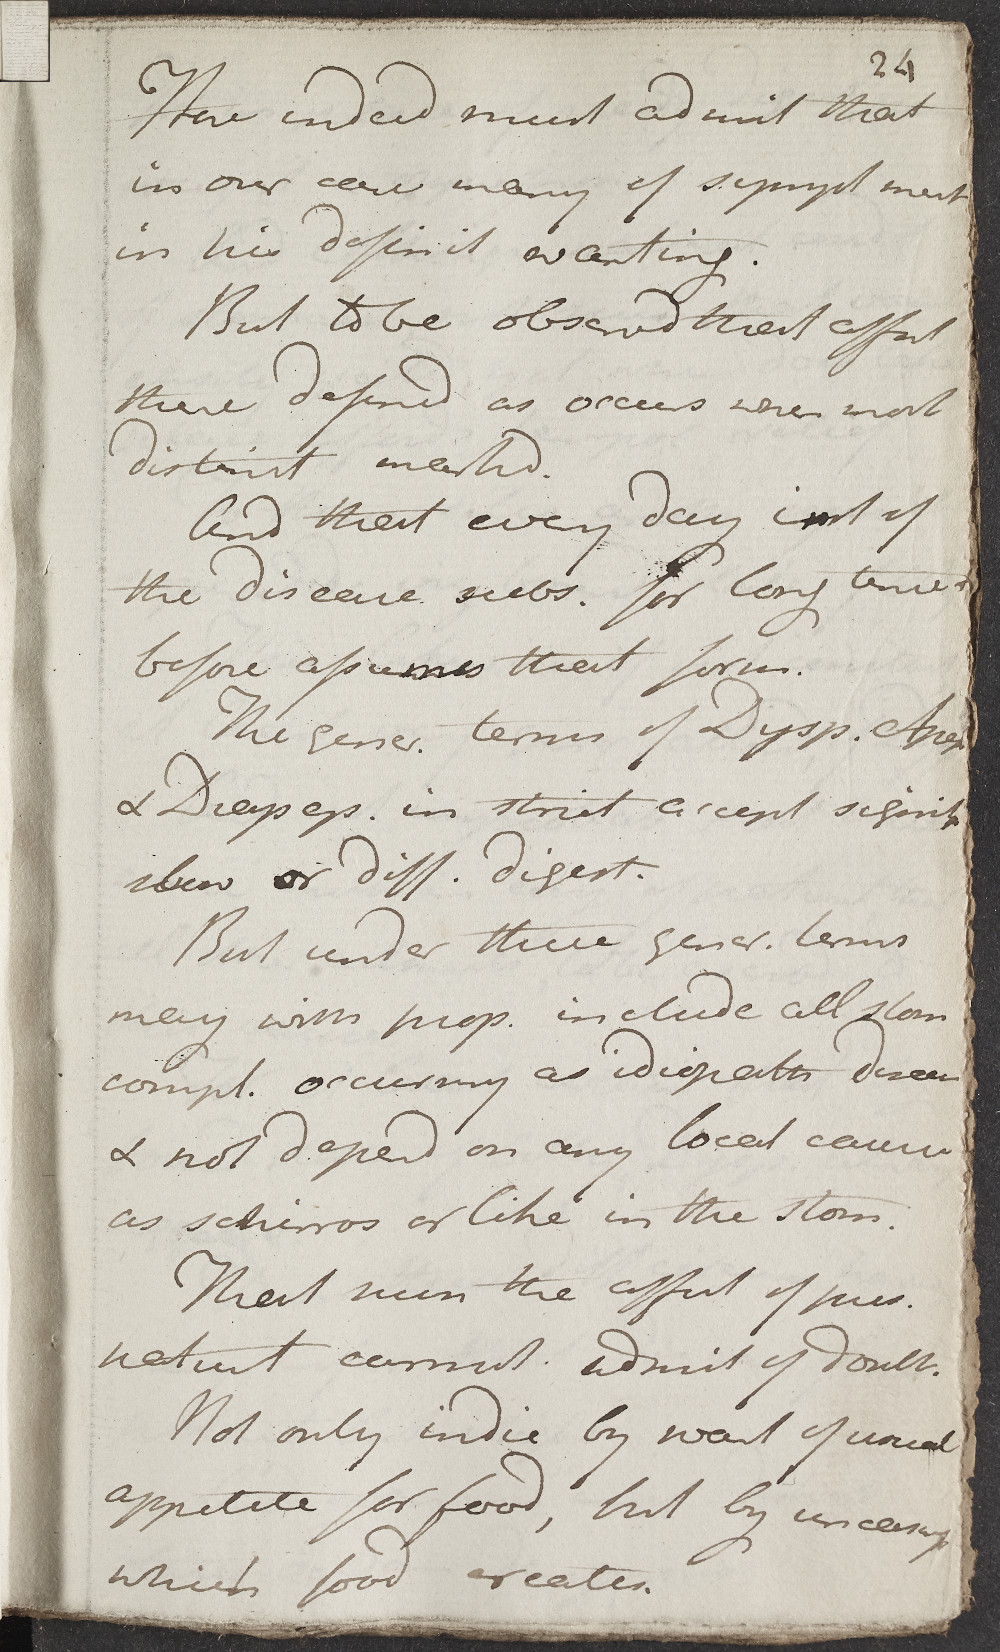 24
Here indeed must admit that
in our case many of sympt ment
in his definit wanting.
But to be observed that affect
there defined as occurs when most
distinct markd.
And that every day inst of
the disease subs. for long time
before assumes that form.
The gener. terms of Dysp. Apep
& Diapep. in strict accept signif
slow or diff. digest.
But under these gener. terms
may with prop. include all stom
compl. occurring as idiopath diseas
& not depend on any local cause
as schirros or like in the stom.
That now the affect of pres.
patient cannot admit of doubt.
Not only indic by want of usual
appetite for food, but by uneasiness
which food creates.